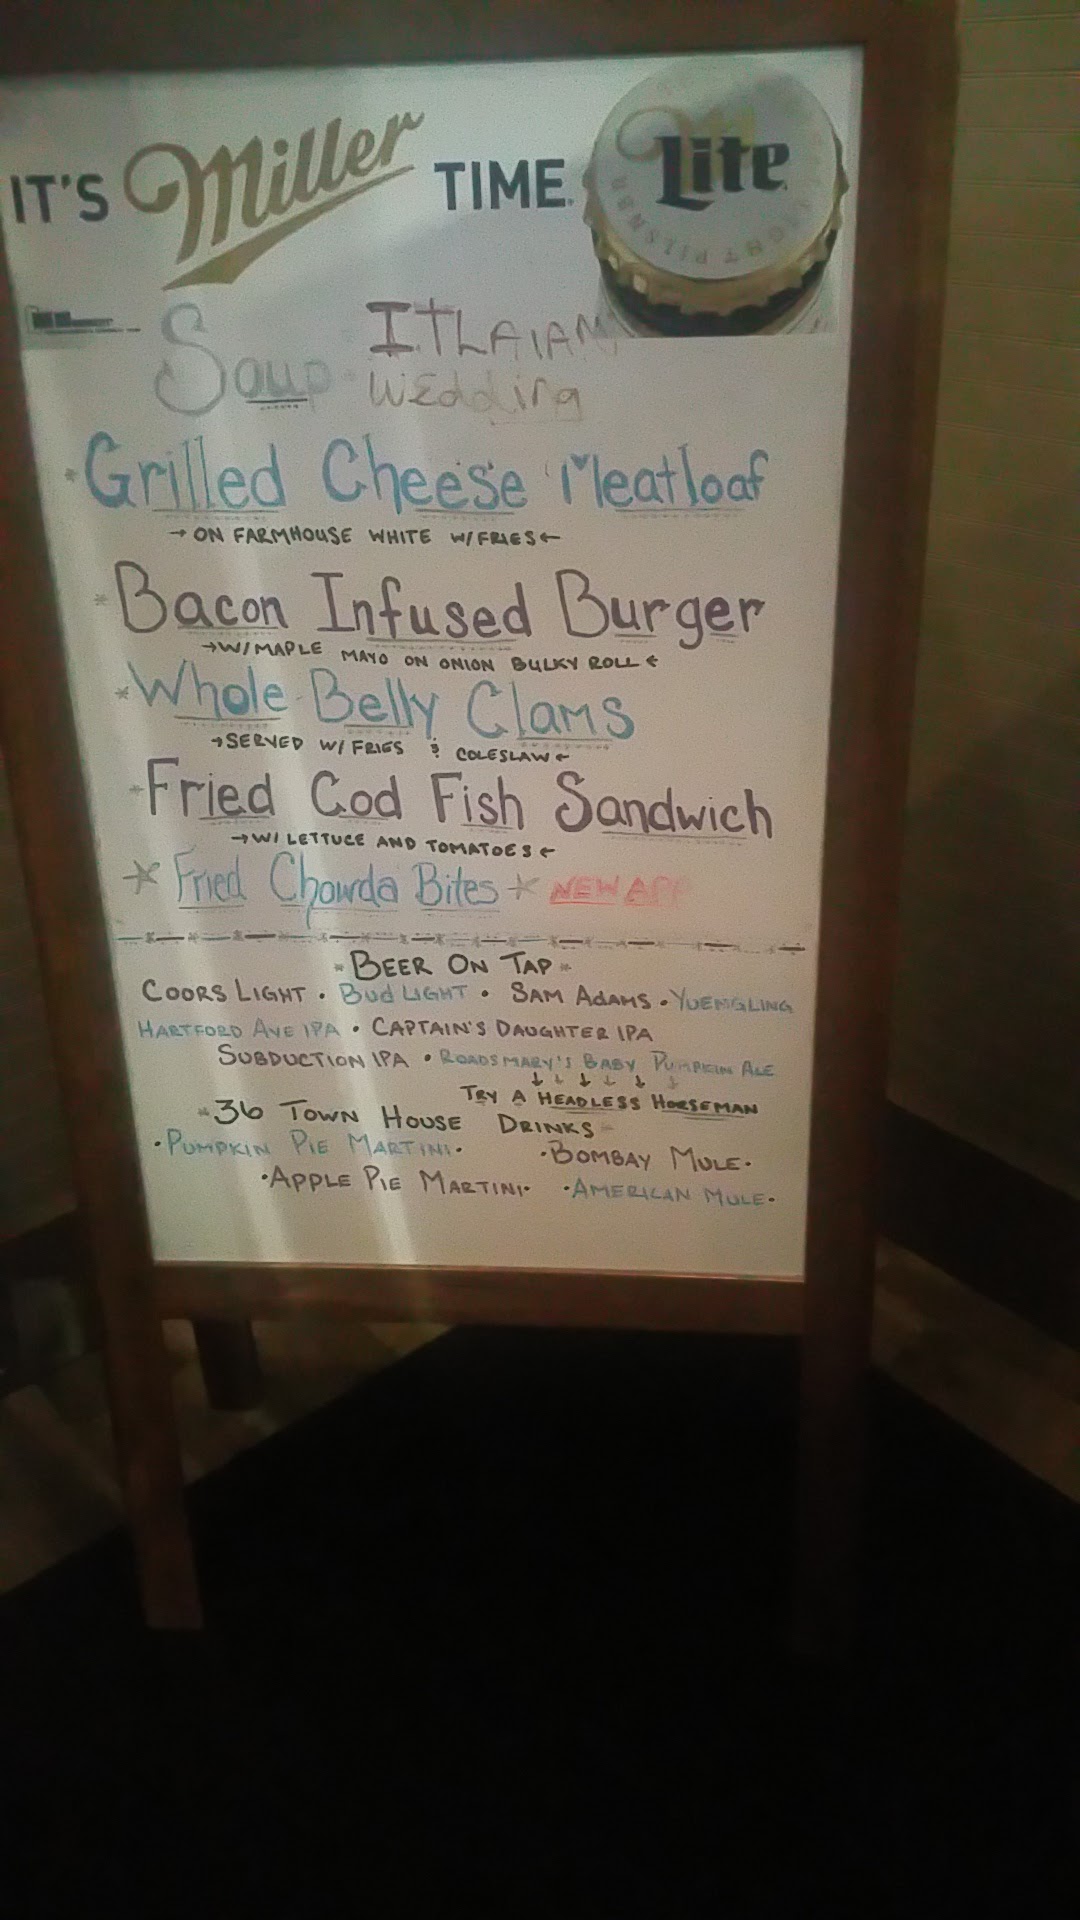 IT'S Miller TIME. Lite
LIGHT PILSNER
Soup ITLAIAN
Wedding
* Grilled Cheese Meatloaf
→ ON FARMHOUSE WHITE W/ FRIES ←
* Bacon Infused Burger
→ W/ MAPLE MAYO ON ONION BULKY ROLL ←
* Whole-Belly Clams
→ SERVED W/ FRIES & COLESLAW ←
* Fried Cod Fish Sandwich
→ W/ LETTUCE AND TOMATOES ←
* Fried Chowda Bites * NEW APP
* BEER ON TAP *
COORS LIGHT • BUD LIGHT • SAM ADAMS • YUENGLING
HARTFORD AVE IPA • CAPTAIN'S DAUGHTER IPA
SUBDUCTION IPA • ROADSMARY'S BABY PUMPKIN ALE
↓ ↓ ↓ ↓ ↓ ↓
TRY A HEADLESS HORSEMAN
* 36 TOWN HOUSE DRINKS *
• PUMPKIN PIE MARTINI • • BOMBAY MULE •
• APPLE PIE MARTINI • • AMERICAN MULE •